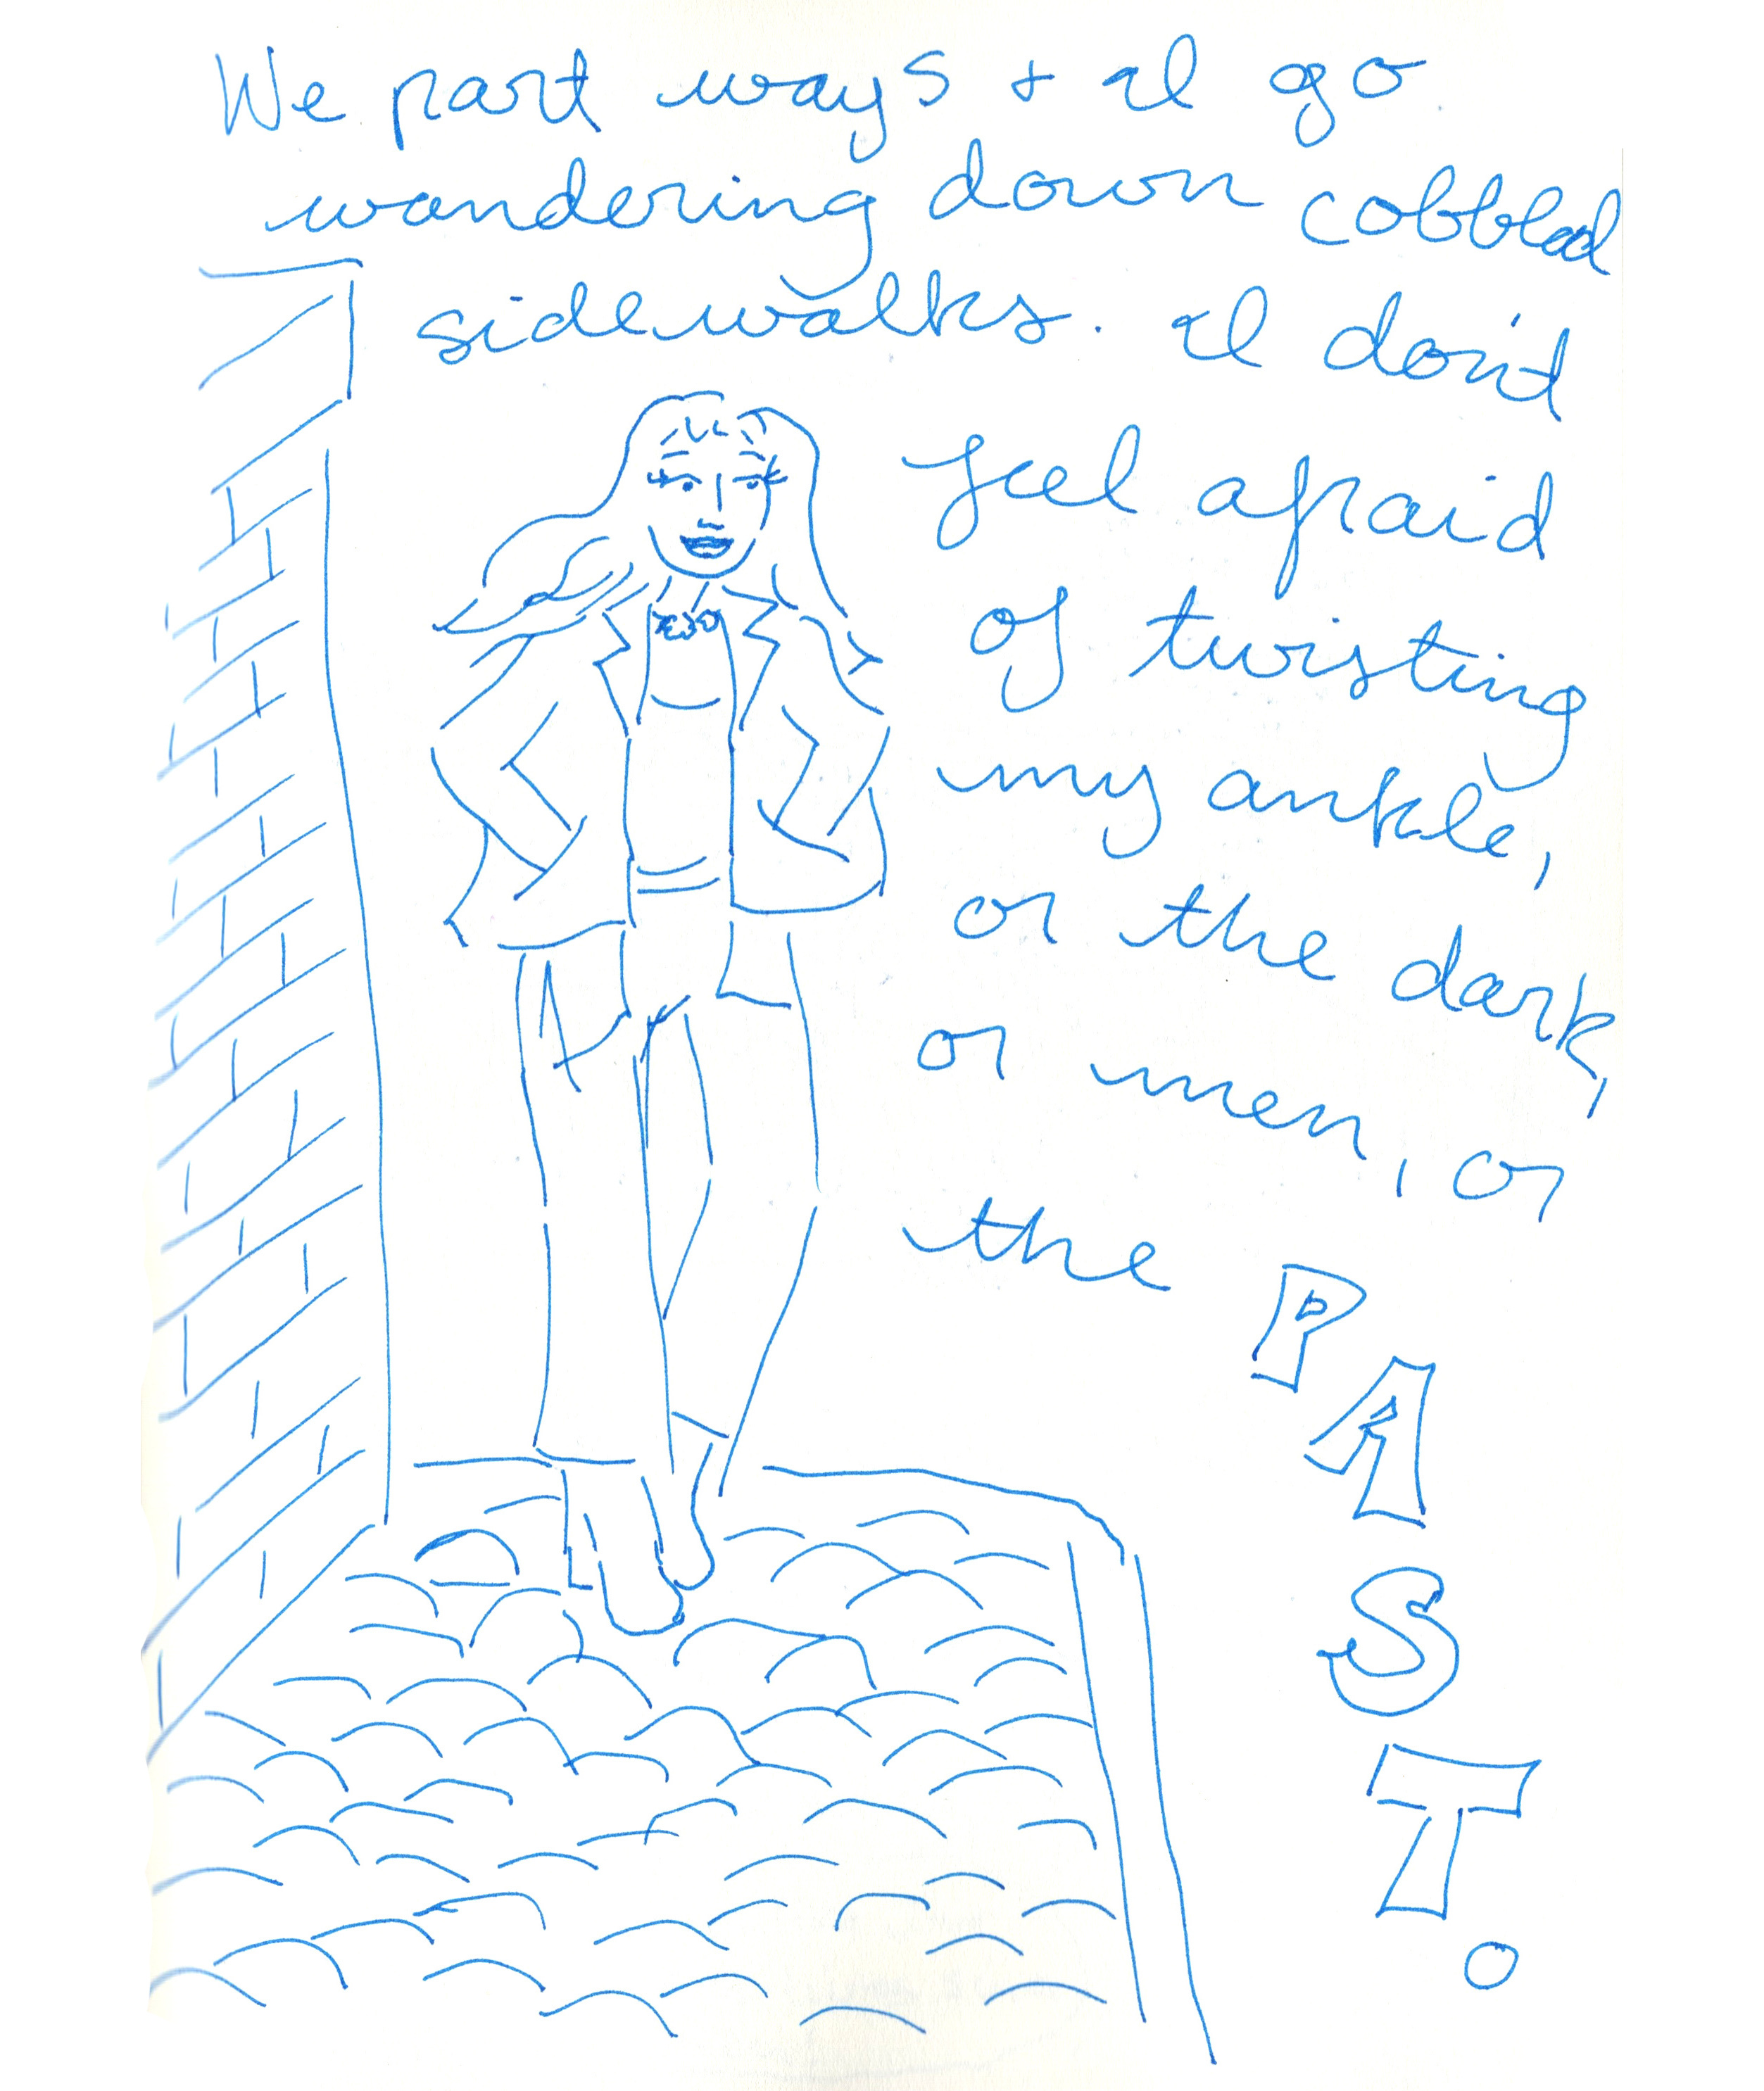 We part ways + I go
wandering down cobbled
sidewalks. I don't
feel afraid
of twisting
my ankle,
or the dark,
or men, or
the PAST.